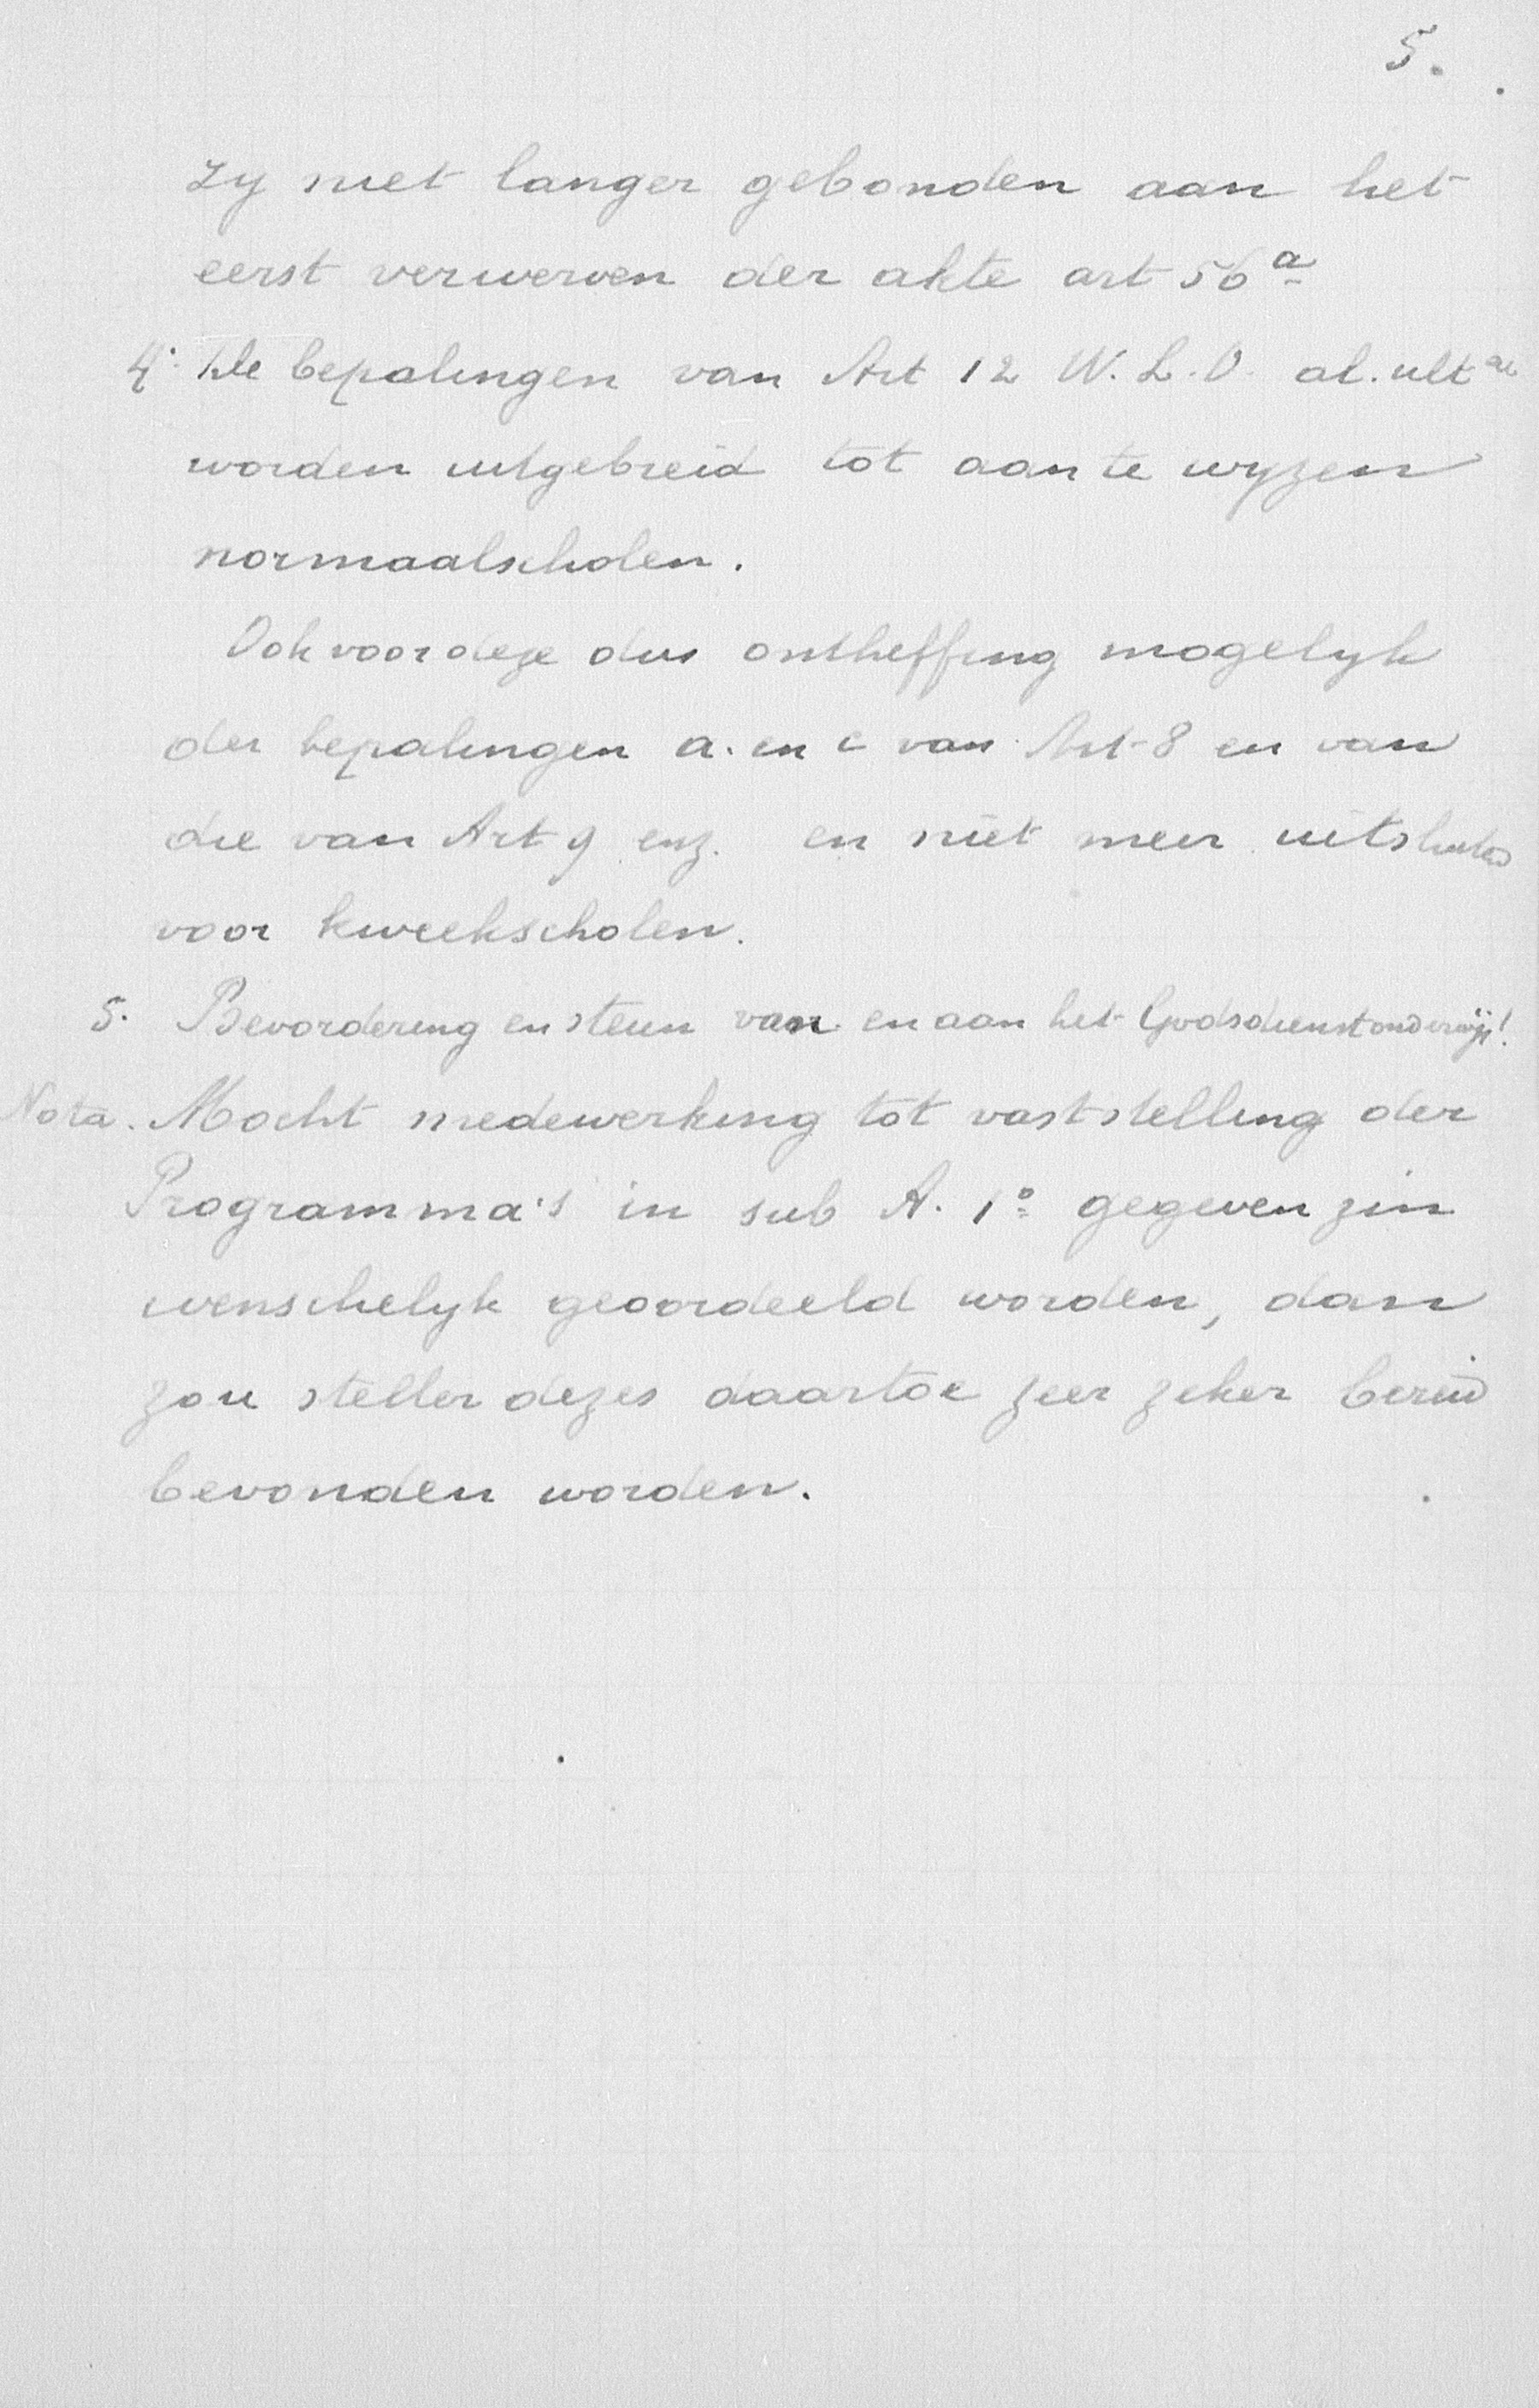 5.
zy niet langer gebonden aan het
eerst verwerven der akte art 56a
4. De bepalingen van Art 12 W.L.O. al. ult ae
worden uitgebreid tot aan te wyzen
normaalscholen.
Ook voor deze dus ontheffing mogelyk
der bepalingen a. en c van Art 8 en van
die van Art 9 enz. en niet meer uitsluitend
voor kweekscholen.
5. Bevordering en steun van en aan het Godsdienstonderwijs!
Nota. Mocht medewerking tot vaststelling der
Programma's in sub A. 1o gegeven zin
wenschelyk geoordeeld worden, dan
zou steller dezes daartoe zeer zeker bereid
bevonden worden.